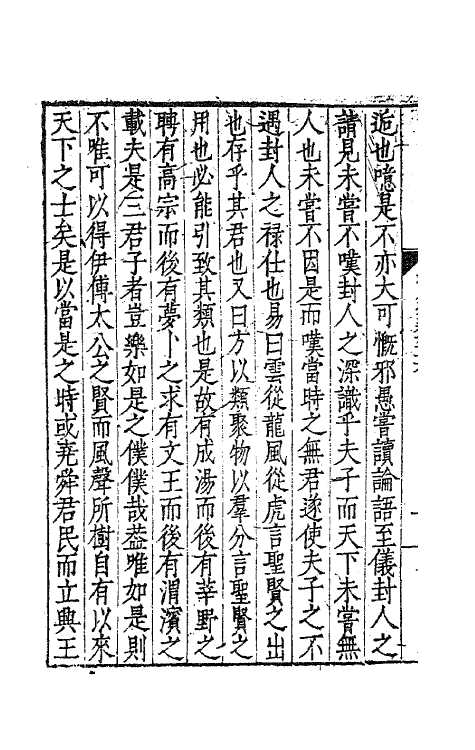 近也噫是不亦大可慨邪愚嘗讀論語至儀封人之
請見未嘗不嘆封人之深識乎夫子而天下未嘗無
人也未嘗不因是而嘆當時之無君遂使夫子之不
遇封人之禄仕也易曰雲從龍風從虎言聖賢之出
也存乎其君也又曰方以類聚物以羣分言聖賢之
用也必能引致其類也是故有成湯而後有莘野之
聘有高宗而後有夢卜之求有文王而後有渭濱之
載夫是三君子者豈樂如是之僕僕哉葢唯如是則
不唯可以得伊傅太公之賢而風聲所樹自有以來
天下之士矣是以當是之時或堯舜君民而立興王